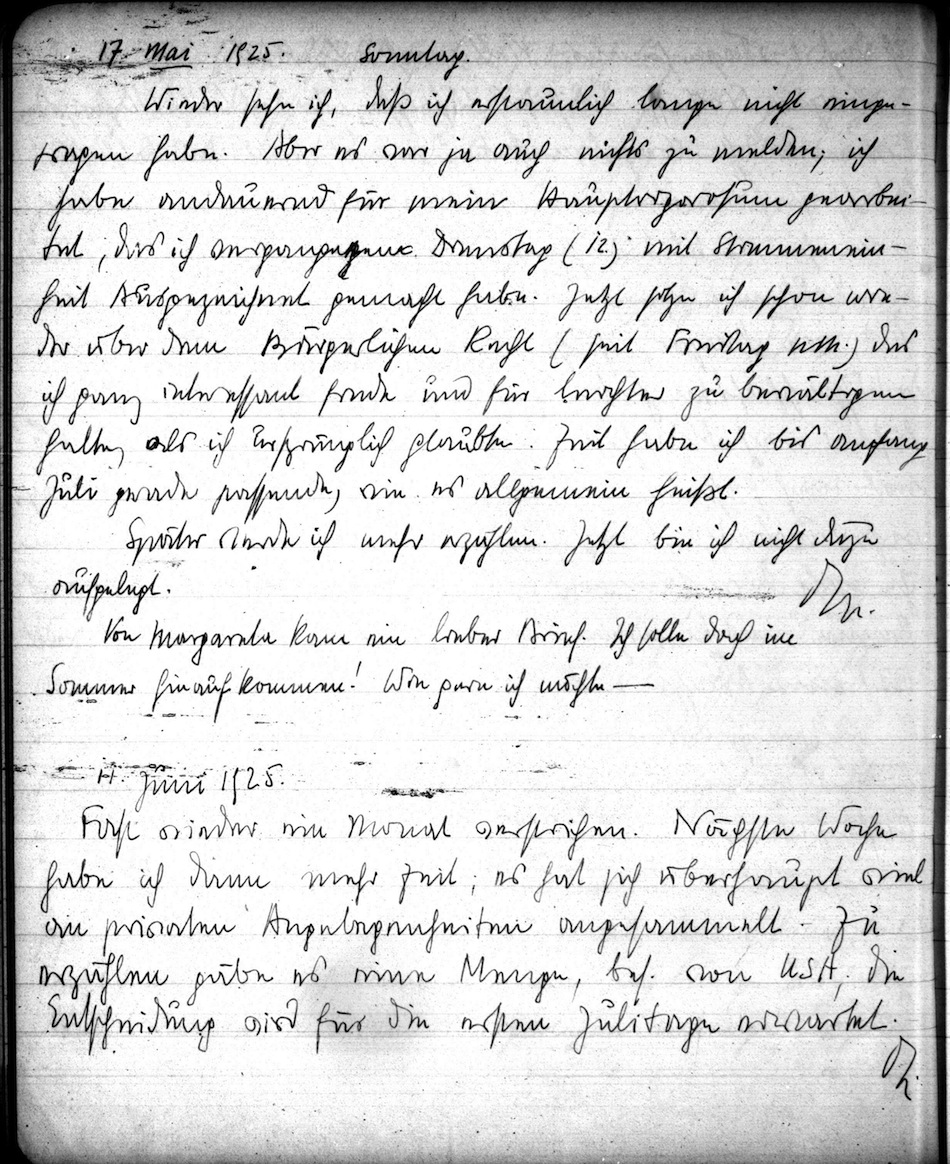 17. Mai 1925. Sonntag.
Wieder sehe ich, daß ich erstaunlich lange nicht einge-
tragen habe. Aber es war ja auch nichts zu melden; ich
habe andauernd für mein gearbei-
tet, das ich vergangenen Dienstag (12.) mit Stimmenein-
heit Ausgezeichnet gemacht habe. Jetzt sitze ich schon wie-
der über dem Bürgerlichen Recht (seit Freitag nm.) das
ich ganz interessant finde und für leichter zu bewältigen
halte, als ich ursprünglich glaubte. Zeit habe ich bis anfang
Juli gerade passende, wie es allgemein heißt.
Später werde ich mehr erzählen. Jetzt bin ich nicht dazu
aufgelegt.
Von Margarete kam ein lieber Brief. Ich solle doch im
Sommer hinaufkommen! Wie gern ich möchte —
Juni 1925.
Fast wieder ein Monat verstrichen. Nächste Woche
habe ich dann mehr Zeit; es hat sich überhaupt viel
an privaten Angelegenheiten angesammelt. Zu
erzählen gäbe es eine Menge, bes. von USA; die
Entscheidung wird für die ersten Julitage erwartet.